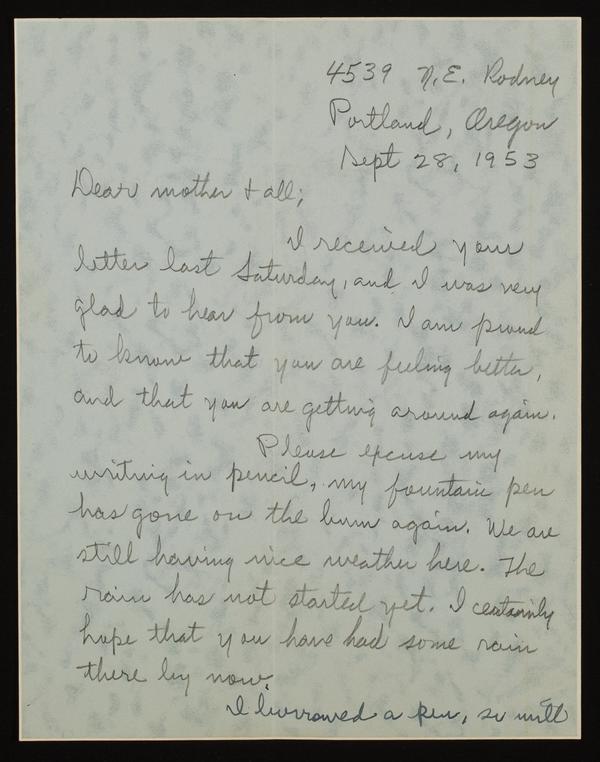 4539 N.E. Rodney
Portland, Oregon
Sept 28, 1953
Dear mother & all;
I received your
letter last Saturday, and I was very
glad to hear from you. I am proud
to know that you are feeling better,
and that you are getting around again.
Please excuse my
writing in pencil, my fountain pen
has gone on the bum again. We are
still having nice weather here. The
rain has not started yet. I certainly
hope that you have had some rain
there by now.
I borrowed a pen, so will